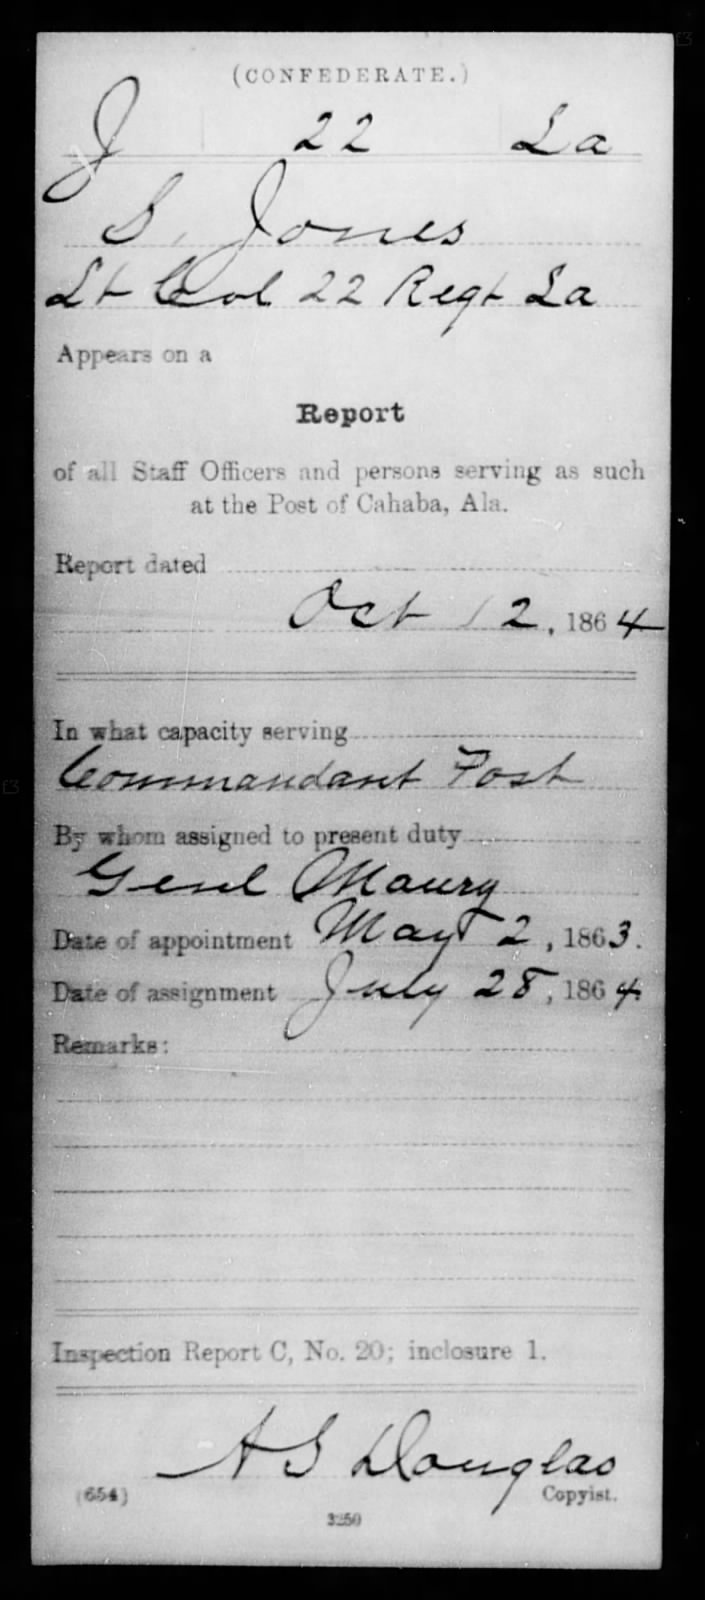 (CONFEDERATE.)
J 22 La
S. Jones
Lt Col 22 Regt La
Appears on a
Report
of all Staff Officers and persons serving as such
at the Post of Cahaba, Ala.
Report dated
Oct 12, 1864
In what capacity serving
Commandant Post
By whom assigned to present duty
Genl Maury
Date of appointment May 2, 1863.
Date of assignment July 28, 1864.
Remarks:
Inspection Report C, No. 20; inclosure 1.
A S Douglas
(654) Copyist.
3250